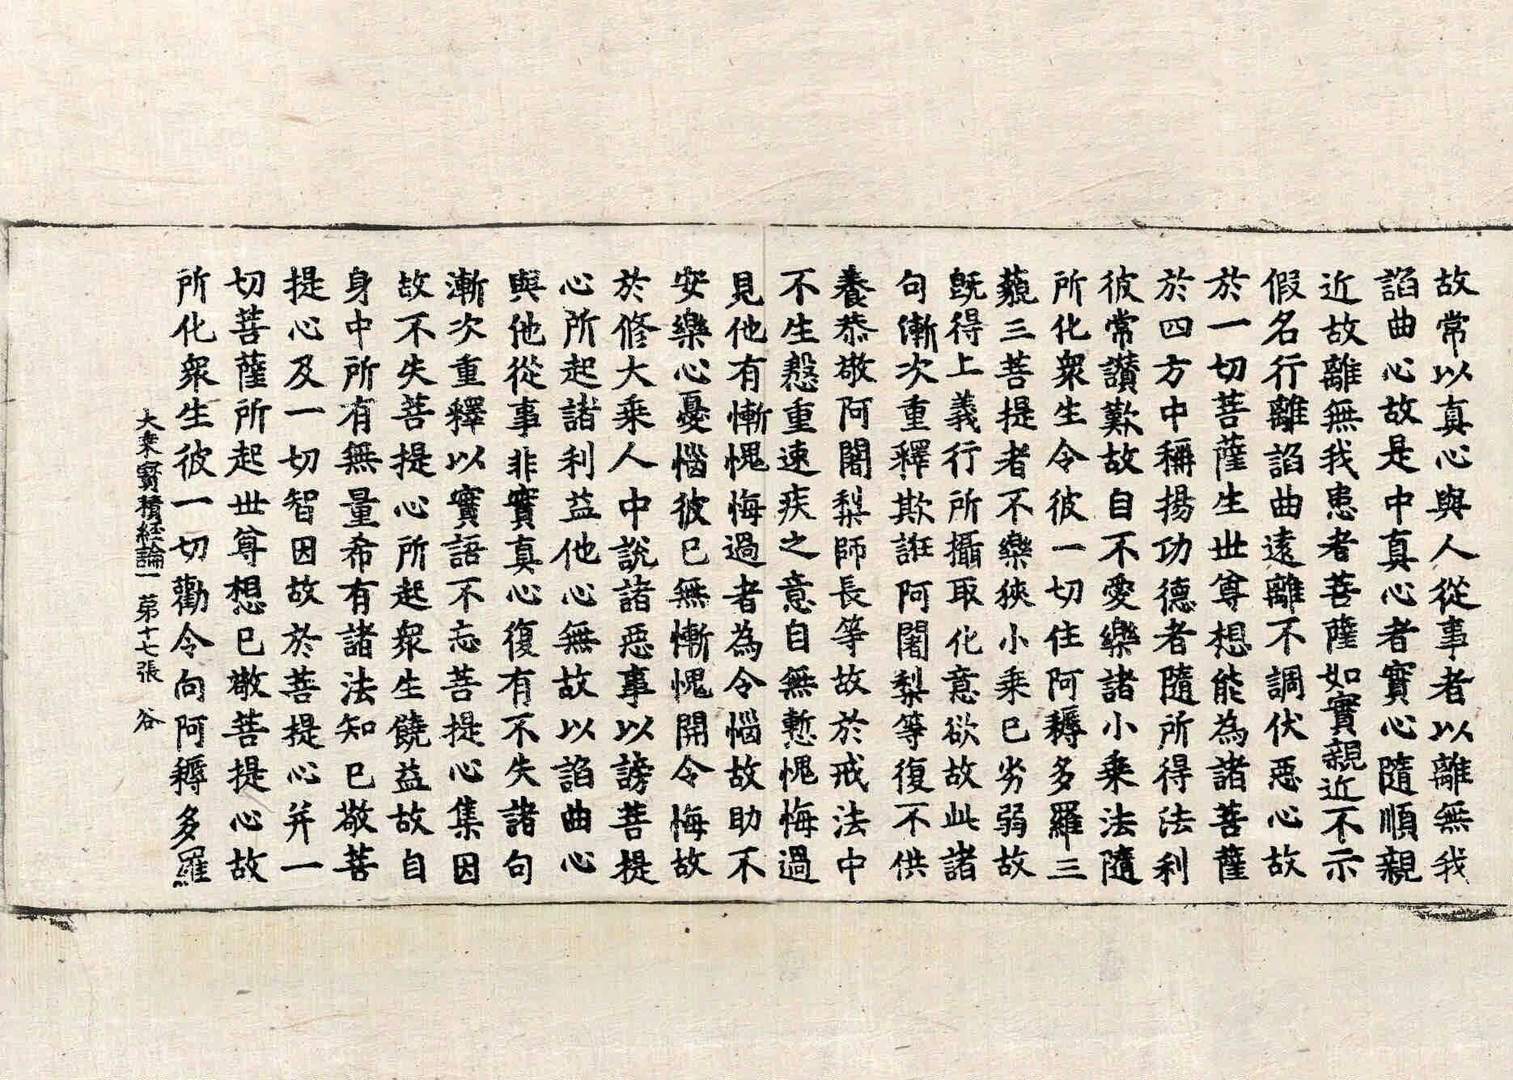 故常以真心與人從事者以離無我
諂曲心故是中真心者實心隨順親
近故離無我患者菩薩如實親近不示
假名行離諂曲遠離不調伏惡心故
於一切菩薩生世尊想能為諸菩薩
於四方中稱揚功德者隨所得法利
彼常讚歎故自不愛樂諸小乘法隨
所化衆生令彼一切住阿耨多羅三
藐三菩提者不樂狹小乘已劣弱故
既得上義行所攝取化意欲故此諸
句漸次重釋欺誑阿闍梨等復不供
養恭敬阿闍梨師長等故於戒法中
不生慇重速疾之意自無慙愧悔過
見他有慚愧悔過者為令惱故助不
安樂心憂惱彼已無慚愧開令悔故
於修大乘人中說諸惡事以謗菩提
心所起諸利益他心無故以諂曲心
與他從事非實真心復有不失諸句
漸次重釋以實語不忘菩提心集因
故不失菩提心所起衆生饒益故自
身中所有無量希有諸法知已敬菩
提心及一切智因故於菩提心并一
切菩薩所起世尊想已敬菩提心故
所化衆生彼一切勸令向阿耨多羅
大乘寳積經論一 第十七張 谷